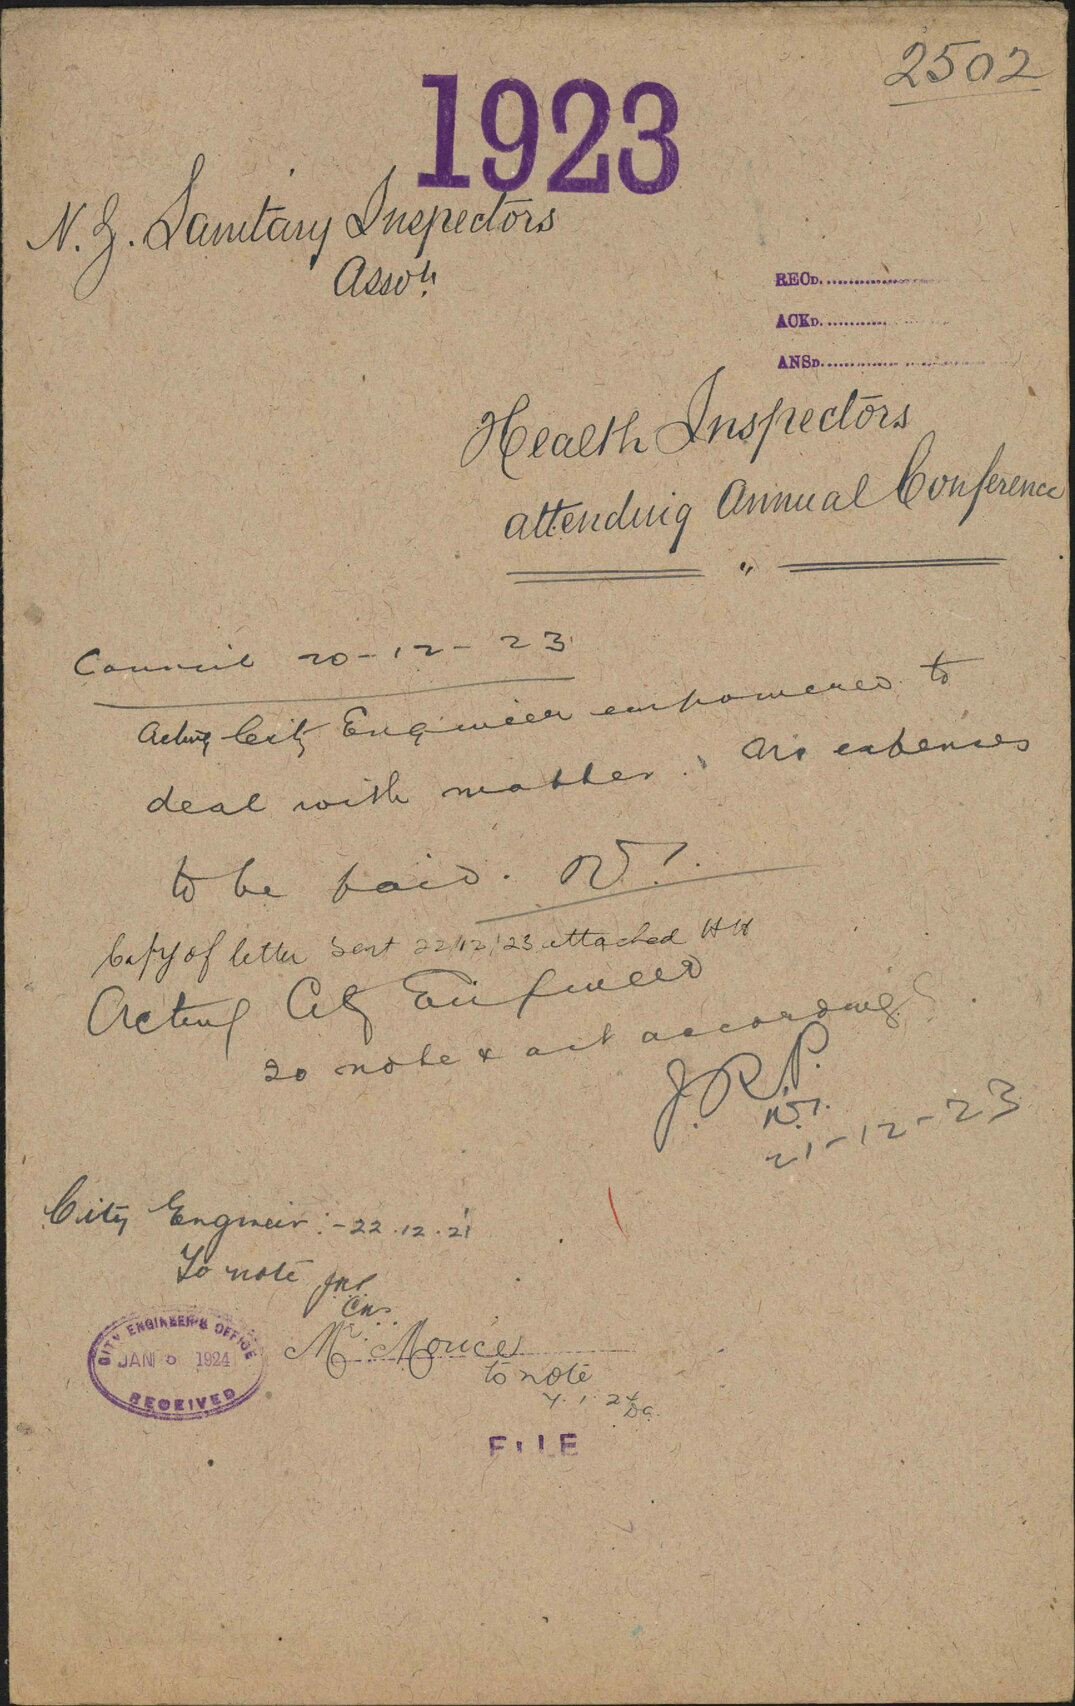 2502
1923
N. Z. Sanitary Inspectors
Assoⁿ.
RECD.
ACKD.
ANSD.
Health Inspectors
attending Annual Conference
"
Council 20-12-23
Acting City Engineer empowered to
deal with matter. expenses
to be paid.
Copy of letter sent 22/12/23 attached HH
Acting City Engineer
to note & act accordingly.
J.R.P.
21-12-23
City Engineer :- 22.12.21
To note
CITY ENGINEER'S OFFICE
JAN 1924
RECEIVED
Mr
to note
FILE